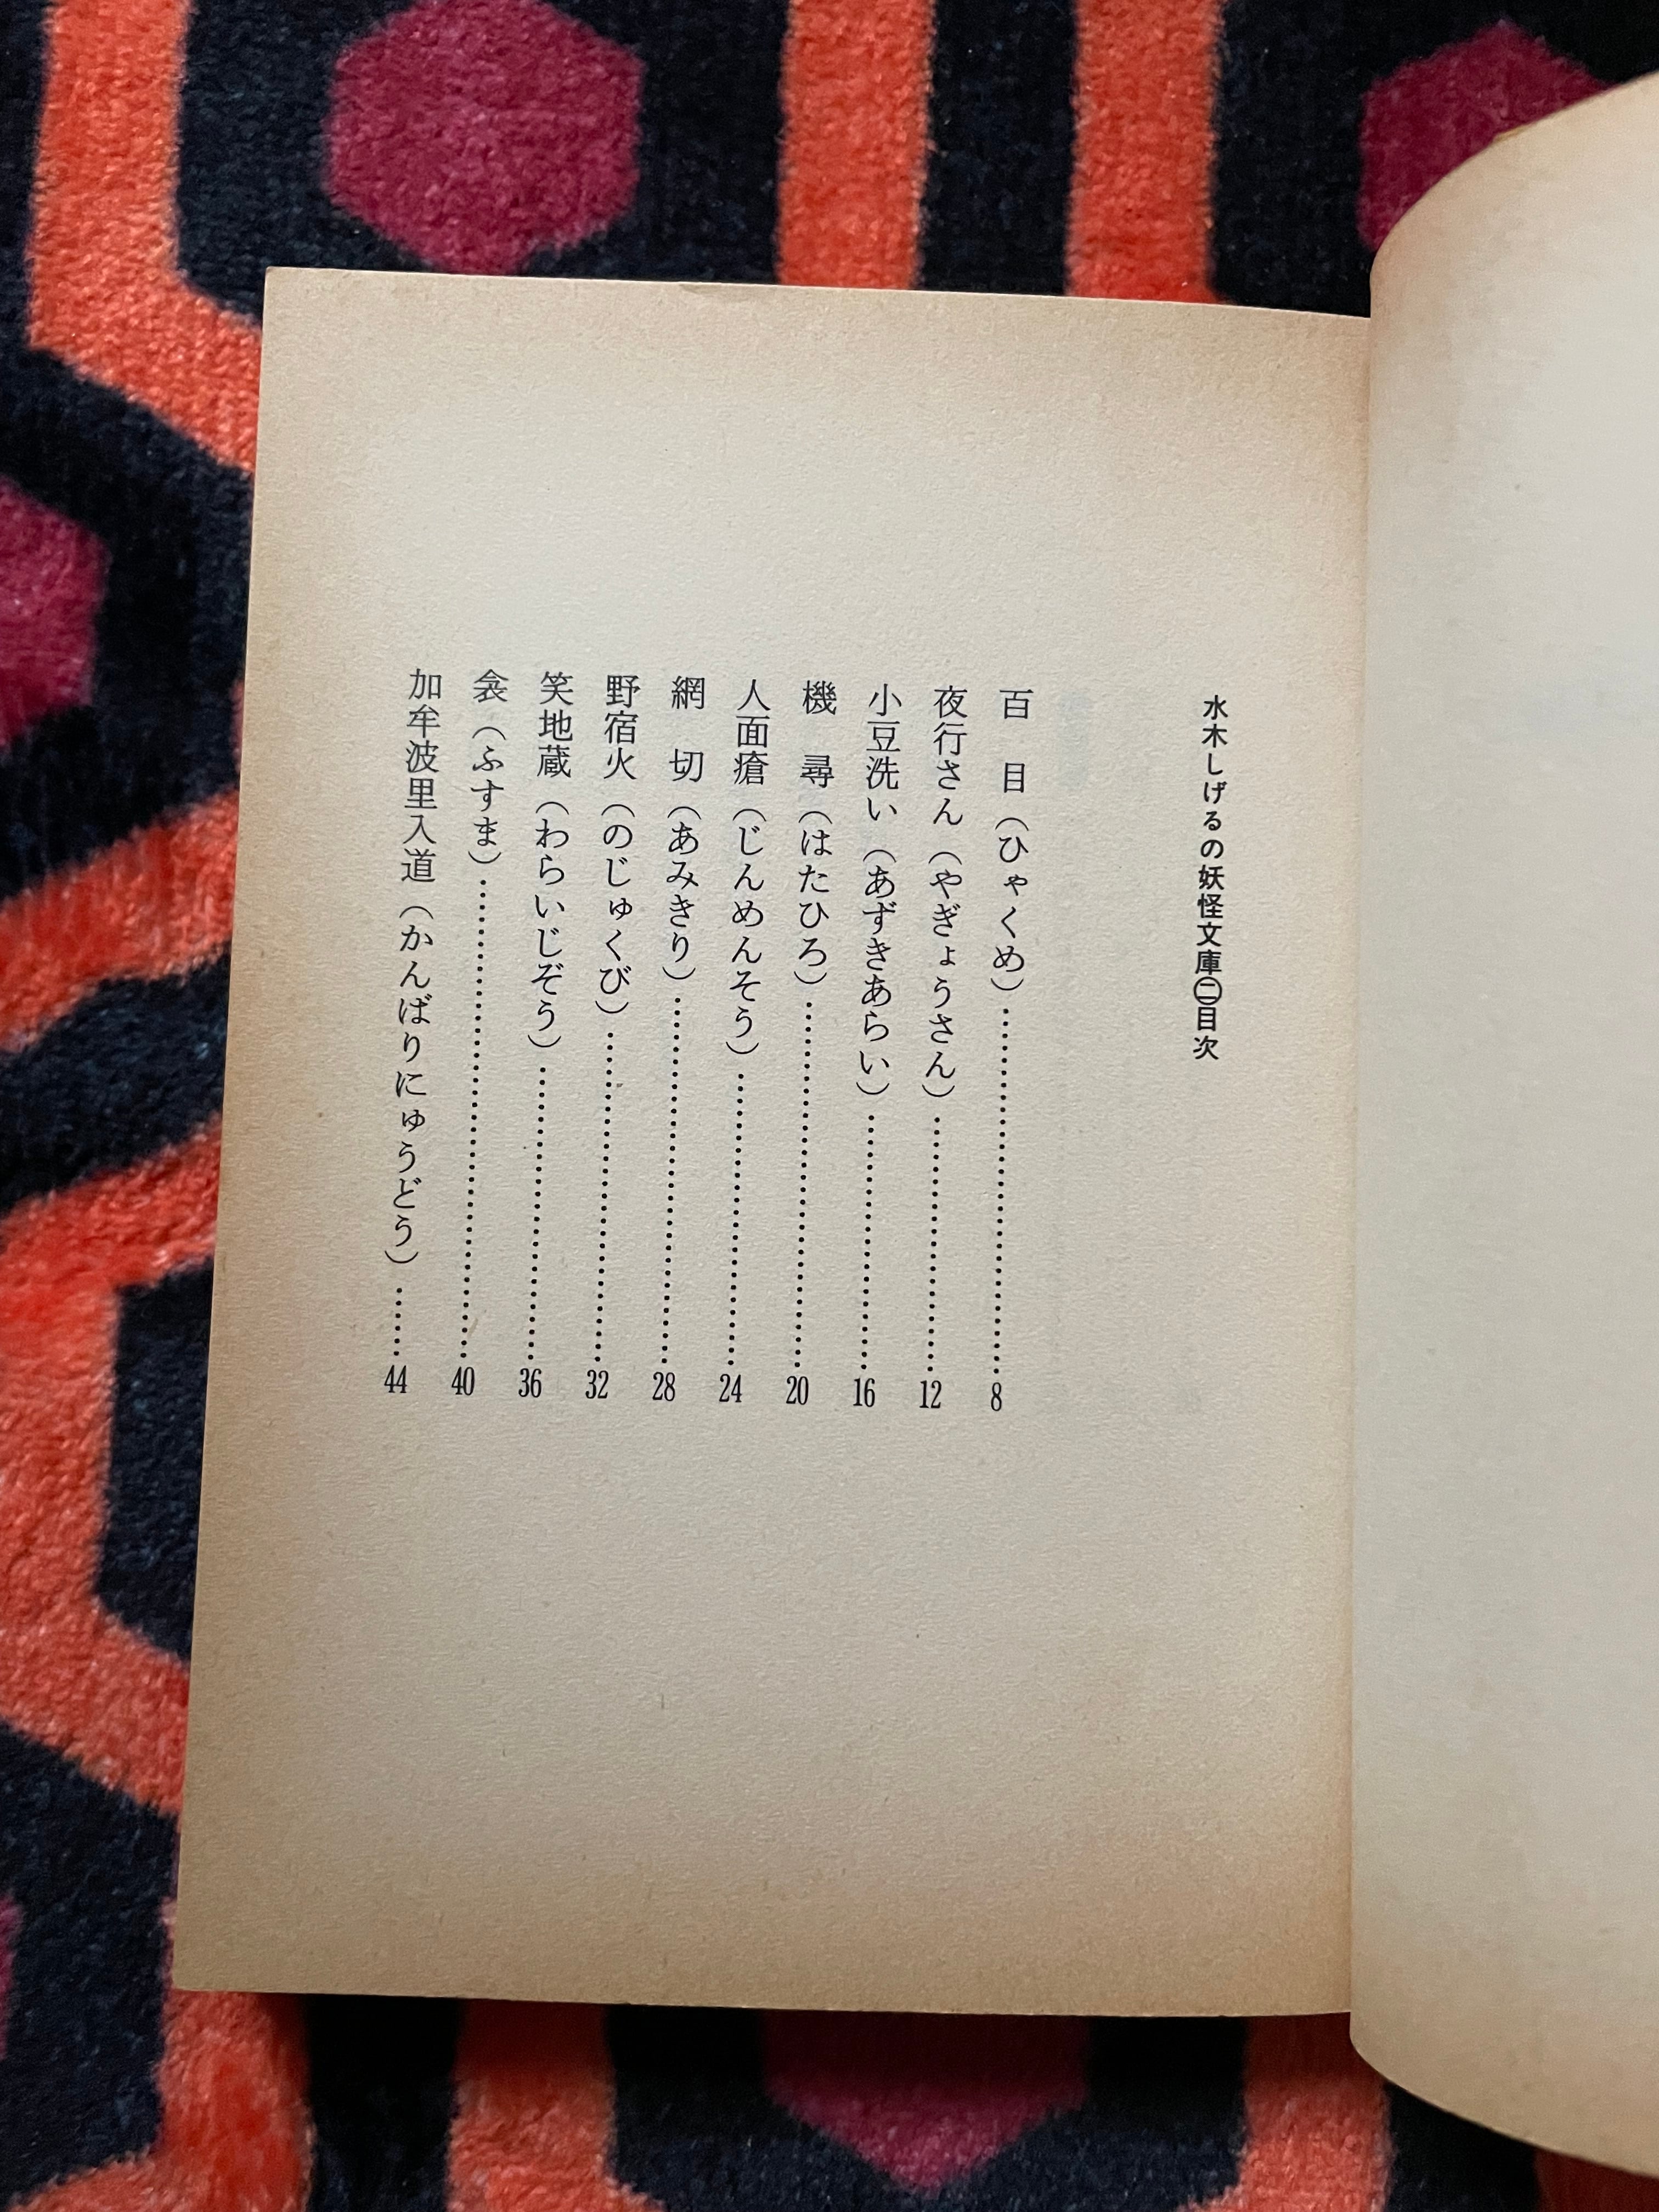 水木しげるの妖怪文庫㊁目次
百　目（ひゃくめ）…………………………8
夜行さん（やぎょうさん）…………………12
小豆洗い（あずきあらい）…………………16
機　尋（はたひろ）…………………………20
人面瘡（じんめんそう）……………………24
網　切（あみきり）…………………………28
野宿火（のじゅくび）………………………32
笑地蔵（わらいじぞう）……………………36
衾（ふすま）…………………………………40
加牟波里入道（かんばりにゅうどう）……44